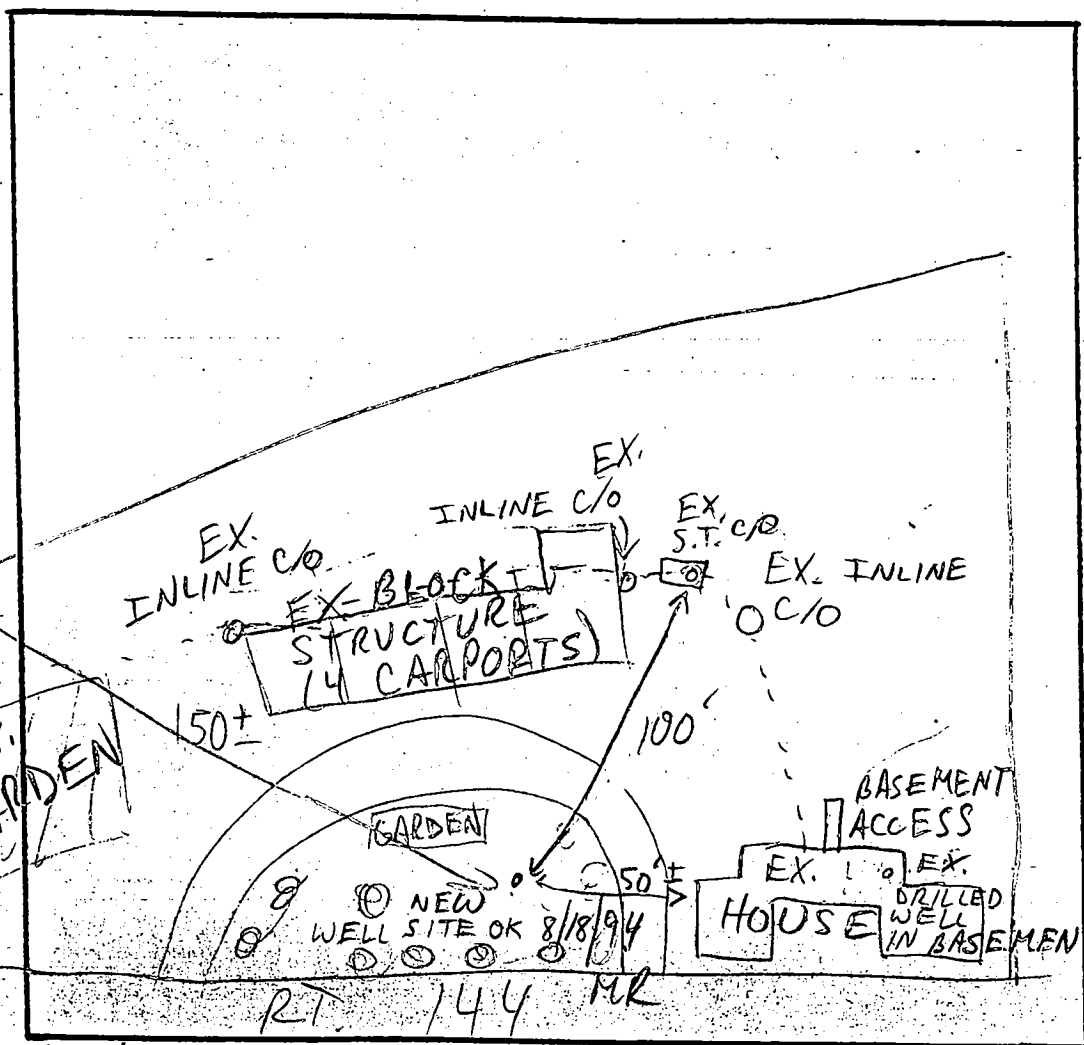 EX.
INLINE C/O
EX.
INLINE C/O
EX.
S.T. C/O
EX. INLINE
C/O
EX-BLOCK
STRUCTURE
(4 CARPORTS)
150±
100'
GARDEN
BASEMENT
ACCESS
50'±
EX.
HOUSE
EX.
DRILLED
WELL
IN BASEMEN
NEW
WELL SITE OK 8/18/94
MR
RT. 144